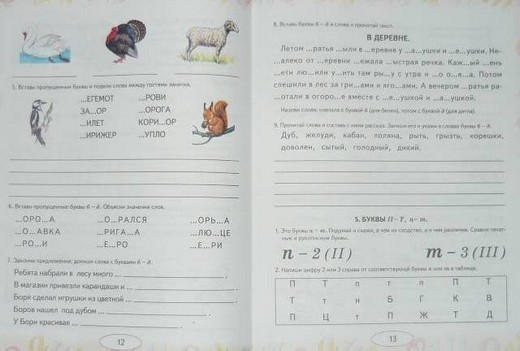 5. Вставь пропущенные буквы и подели слова между гостями занятия.
...ЕГЕМОТ ...РОВИ
ЗА...ОР ...ОРОГА
...ИЛЕТ КОРИ...ОР
...ИРИЖЕР ...УПЛО
6. Вставь пропущенные буквы б – д. Объясни значения слов.
...ОРО...А ...О...РАЛСЯ ...ОРЬ...А
...О...АВКА ...РИГА...А ...ЛЮ...ЦЕ
...РО...И ...Е...РО ...Е...РИ
7. Закончи предложения, дополни слова с буквами б – д.
Ребята набрали в лесу много
В магазин привезли карандаши и
Боря сделал игрушки из цветной
Боров нашел под дубом
У Бори красивая
12
8. Вставь буквы б – д в слова и прочитай текст.
В ДЕРЕВНЕ.
Летом ...ратья ...ыли в ...еревне у ...а...ушки и ...е...ушки. Не-
...алеко от ...еревни ...ежала ...ыстрая речка. Каж...ый ...ень
...ети лю...или у...ить там ры...у с утра и ...о о...е...а. Потом
спешили в лес за гри...ами и яго...ами. А вечером ...ратья ра-
...отали в огоро...е вместе с ...е...ушкой и ...а...ушкой.
Назови слова: сначала с буквой б (для белки), потом с буквой д (для дятла).
9. Прочитай слова и составь с ними рассказ. Запиши его и укажи в словах буквы б – д.
Дуб, желуди, кабан, поляна, рыть, грызть, корешки,
доволен, сытый, голодный, дикий.
5. БУКВЫ П–Т, п–т.
1. Это буквы п – т. Подумай и скажи, в чем их сходство, а в чем различие. Сравни печат-
ные и рукописные буквы.
п – 2 (II) т – 3 (III)
2. Напиши цифру 2 или 3 справа от соответствующей буквы и над ней в таблице.
П Т п т п П Т
Т т н Б Г К В
П Ц т П Ж Т Д
13